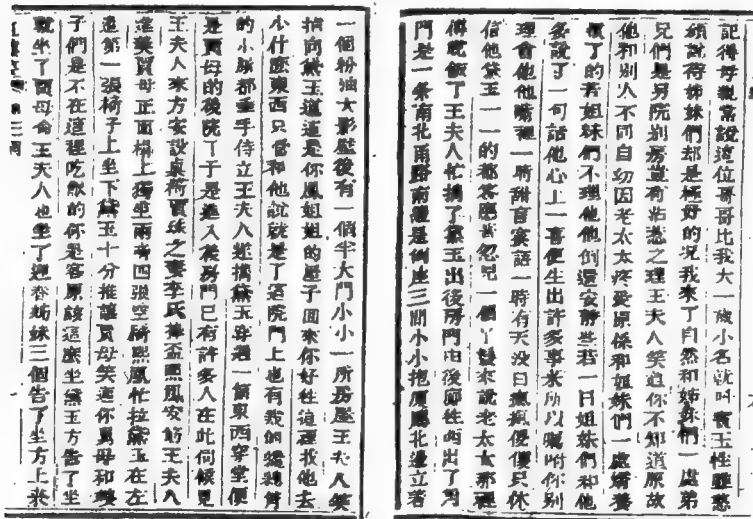 記得母親常說這位哥哥比我大一歲小名就叫寶玉性雖憨
頑說待姊妹們却是極好的况我來了自然和姊妹們一處弟
兄們是另院别房豈有沾惹之理王夫人笑道你不知道原故
他和别人不同自幼因老太太疼愛原係和姐妹們一處嬌養
慣了的若姐妹們不理他他倒還安靜些若一日姐妹們和他
多說了一句話他心上一喜便生出許多事來所以囑咐你别
理會他他嘴裡一時甜言蜜語一時有天没日瘋瘋傻傻只休
信他黛玉一一的都答應着忽見一個丫鬟來說老太太那裡
傳晚飯了王夫人忙携了黛玉出後房門由後廊往西出了角
門是一条南北甬路南邊是倒座三間小小抱厦廳北邊立着
一個粉油大影壁後有一個半大門小小一所房屋王夫人笑
指向黛玉道這是你鳳姐姐的屋子回來你好往這裡找他去
少什麽東西只管和他說就是了這院門上也有幾個纔總角
的小厮都垂手侍立王夫人遂携黛玉穿過一個東西穿堂便
是賈母的後院了于是進入後房門已有許多人在此伺候見
王夫人來方安設桌椅賈珠之妻李氏捧盃熙鳳安筯王夫人
進羮賈母正面榻上獨坐兩旁四張空椅熙鳳忙拉黛玉在左
邊第一張椅子上坐下黛玉十分推讓賈母笑道你舅母和嫂
子們是不在這裡吃飯的你是客原該這麽坐黛玉方告了坐
就坐了賈母命王夫人也坐了迎春姊妹三個告了坐方上來